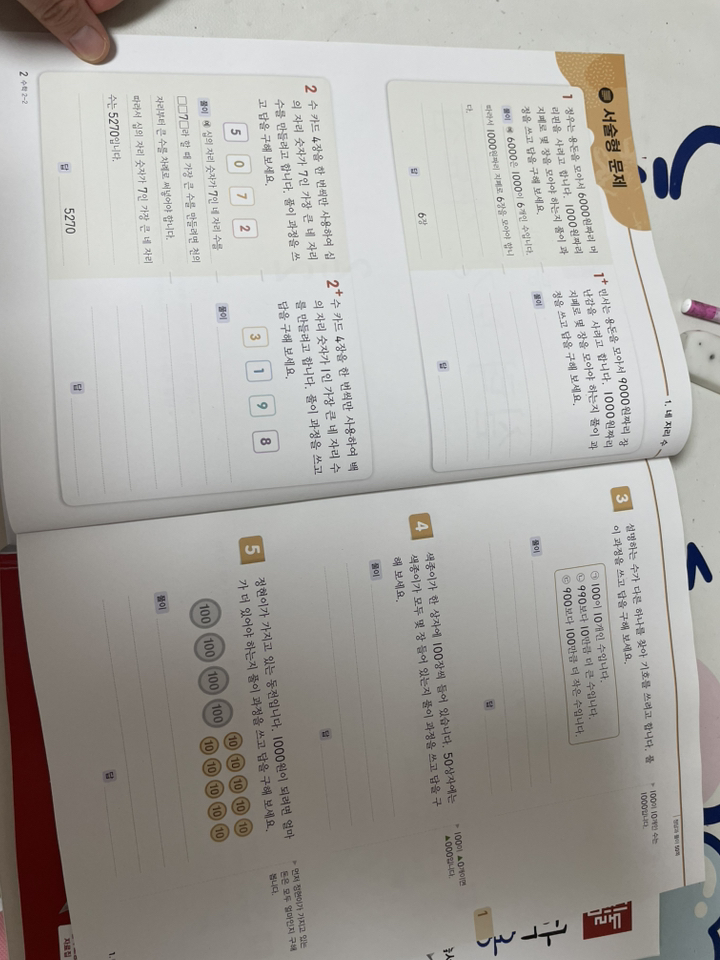 서술형 문제
1. 네 자리 수
1 정우는 용돈을 모아서 6000원짜리 머
리핀을 사려고 합니다. 1000원짜리
지폐로 몇 장을 모아야 하는지 풀이 과
정을 쓰고 답을 구해 보세요.
풀이 예 6000은 1000이 6개인 수입니다.
따라서 1000원짜리 지폐로 6장을 모아야 합니
다.
답 6장
1+ 민서는 용돈을 모아서 9000원짜리 장
난감을 사려고 합니다. 1000원짜리
지폐로 몇 장을 모아야 하는지 풀이 과
정을 쓰고 답을 구해 보세요.
풀이
답
2 수 카드 4장을 한 번씩만 사용하여 십
의 자리 숫자가 7인 가장 큰 네 자리
수를 만들려고 합니다. 풀이 과정을 쓰
고 답을 구해 보세요.
5 0 7 2
풀이 예 십의 자리 숫자가 7인 네 자리 수를
□□7□라 할 때 가장 큰 수를 만들려면 천의
자리부터 큰 수를 차례로 써넣어야 합니다.
따라서 십의 자리 숫자가 7인 가장 큰 네 자리
수는 5270입니다.
답 5270
2+ 수 카드 4장을 한 번씩만 사용하여 백
의 자리 숫자가 1인 가장 큰 네 자리 수
를 만들려고 합니다. 풀이 과정을 쓰고
답을 구해 보세요.
3 1 9 8
풀이
답
2 수학 2-2
정답과 풀이 50쪽
3 설명하는 수가 다른 하나를 찾아 기호를 쓰려고 합니다. 풀
이 과정을 쓰고 답을 구해 보세요.
㉠ 100이 10개인 수입니다.
㉡ 990보다 10만큼 더 큰 수입니다.
㉢ 900보다 100만큼 더 작은 수입니다.
▶ 100이 10개인 수는
1000입니다.
풀이
답
4 색종이가 한 상자에 100장씩 들어 있습니다. 50상자에는
색종이가 모두 몇 장 들어 있는지 풀이 과정을 쓰고 답을 구
해 보세요.
▶ 100이 ▲0개이면
▲000입니다.
풀이
답
5 정현이가 가지고 있는 동전입니다. 1000원이 되려면 얼마
가 더 있어야 하는지 풀이 과정을 쓰고 답을 구해 보세요.
100 100 100 100
10 10 10 10 10
10 10 10 10 10
▶ 먼저 정현이가 가지고 있는
돈은 모두 얼마인지 구해
봅니다.
풀이
답
1